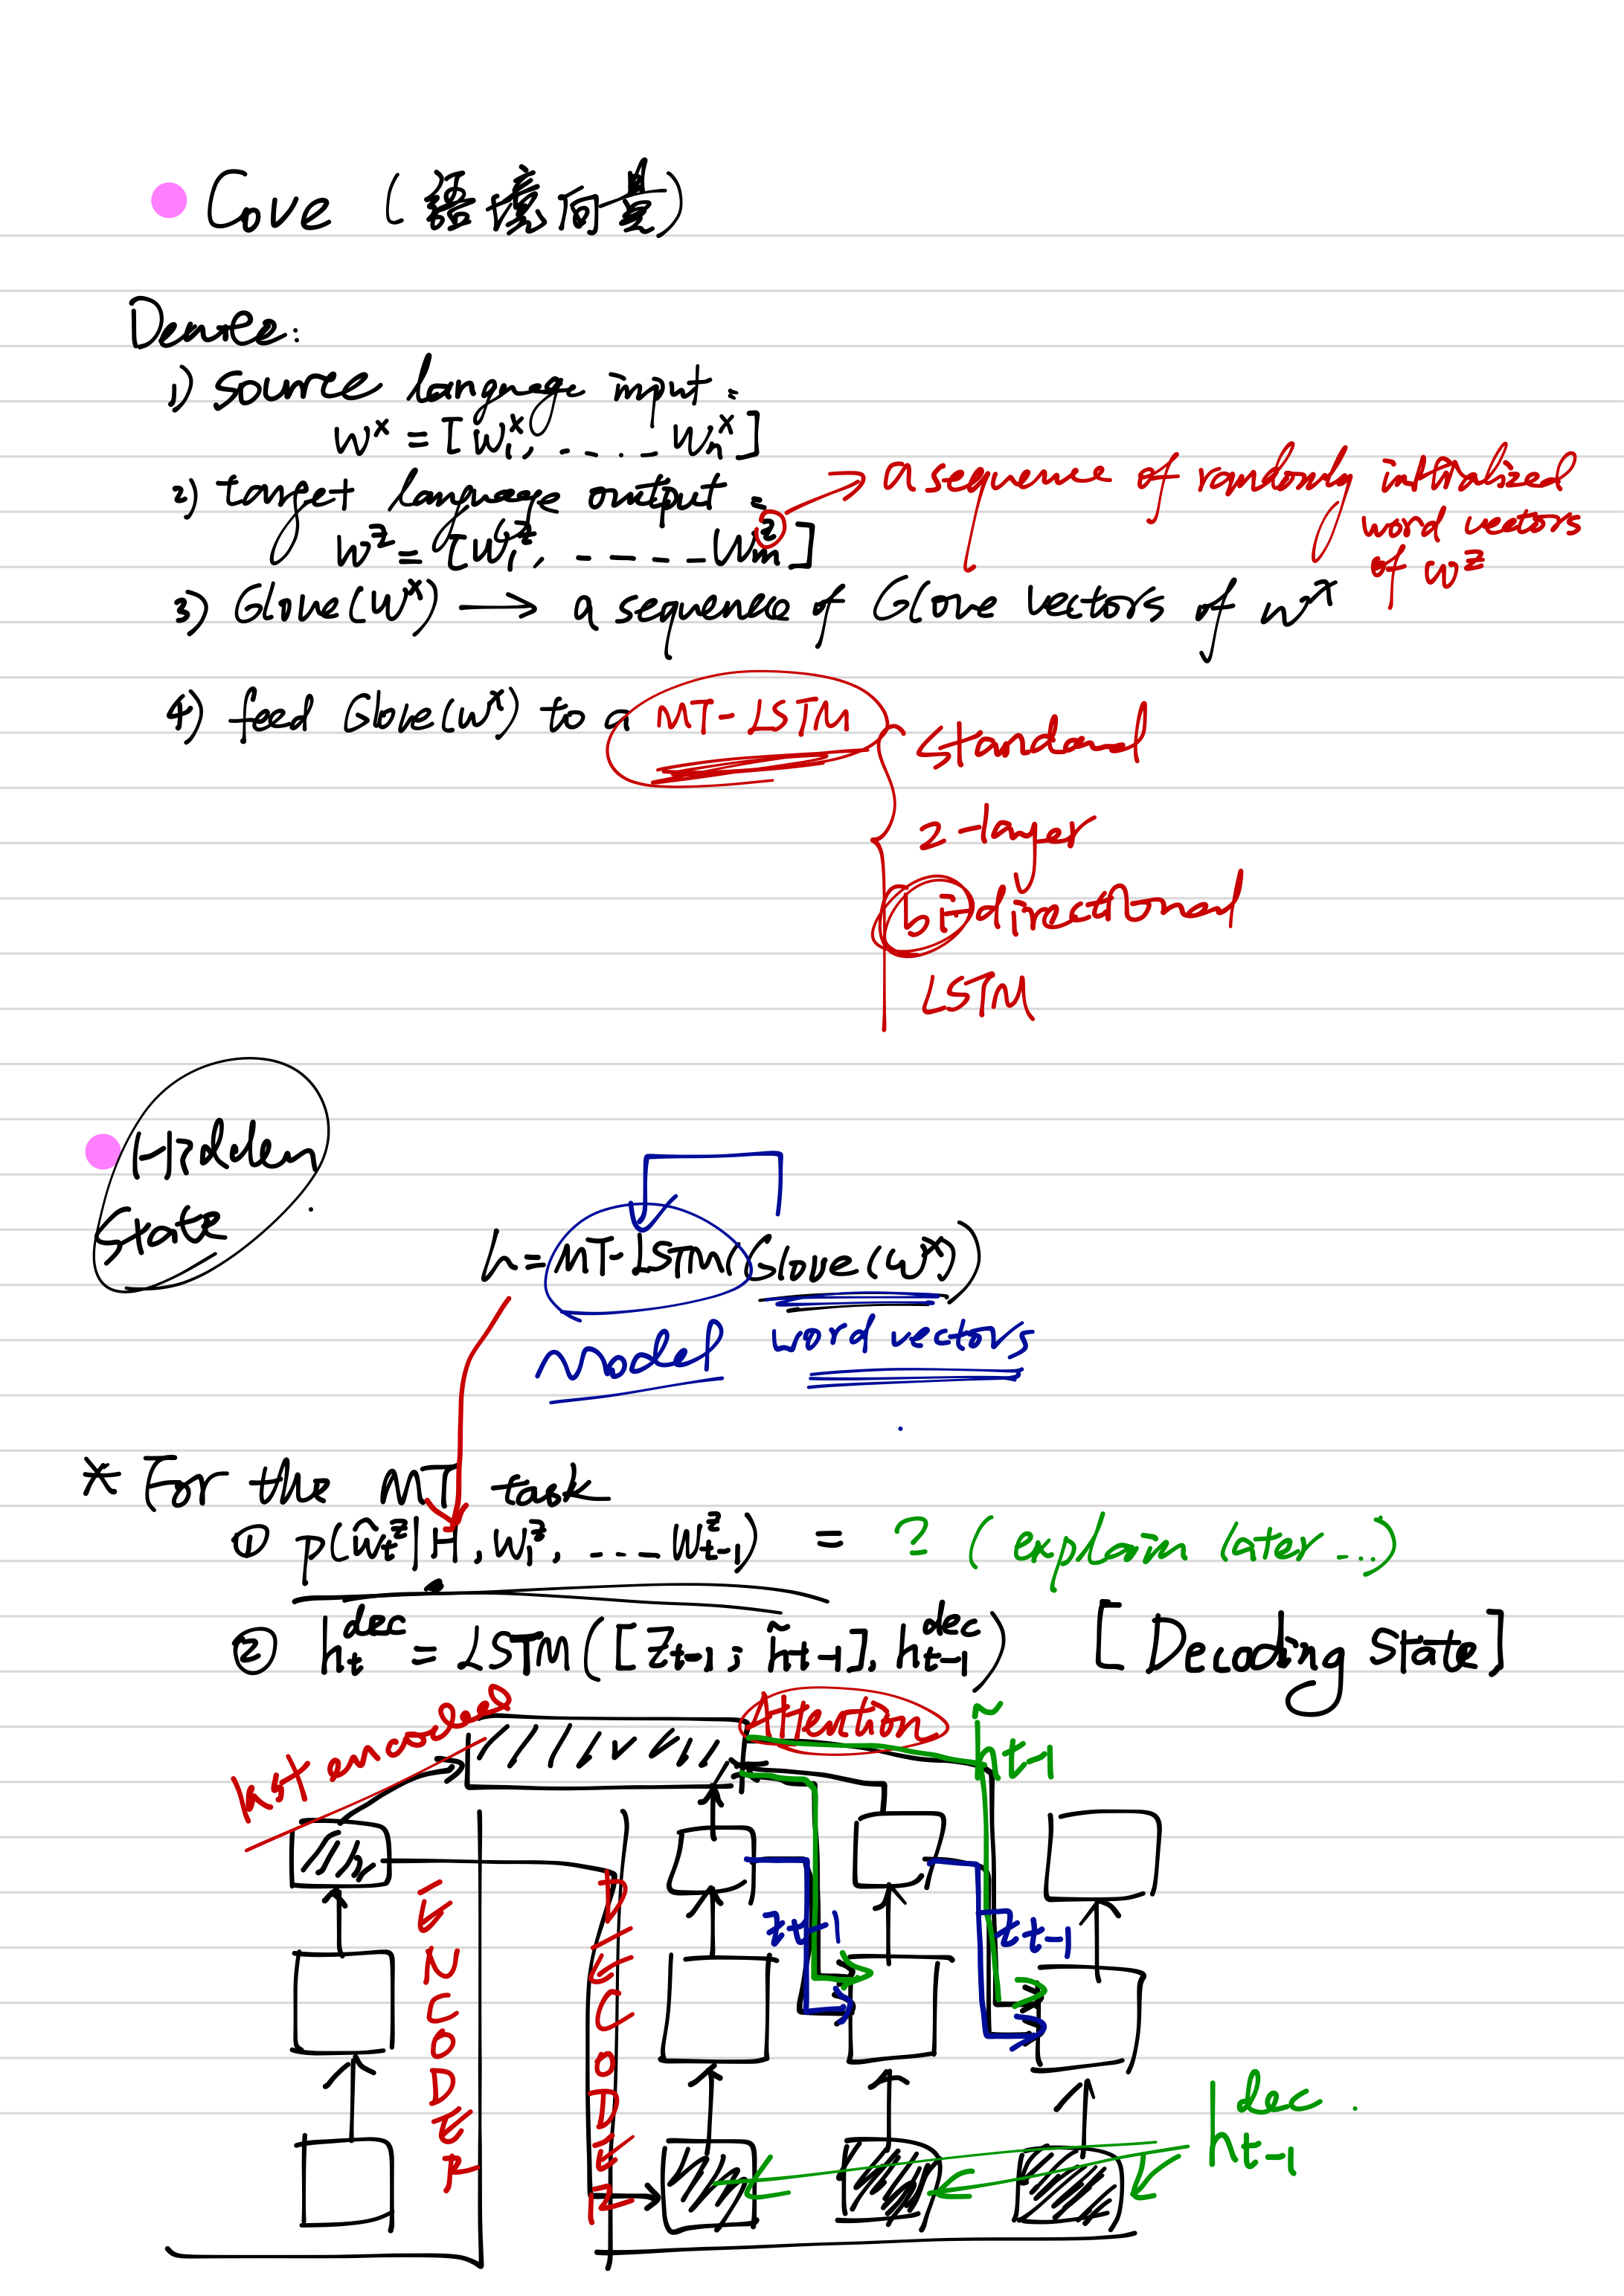 Cove (語境向量)
Denote:
1) source language input:
w^x = [w_1^x, ..... w_n^x]
2) target language output:
w^z = [w_1^z, ------ w_m^z]
→ a sequence of randomly initialized
word vectors
of w^z
3) Glove(w^x) → a sequence of Glove vectors of w^x
4) feed Glove(w^x) to a MT-LSTM
standard
2-layer
bi-directional
LSTM
Hidden
State
h = MT-LSTM(Glove(w^x))
model word vectors
* For the MT task
① p(ŵ_t^z | H, w_1^z, ..... w_{t-1}^z) = ? (explain later ...)
② h_t^{dec} = LSTM([z_{t-1}; h̃_{t-1}], h_{t-1}^{dec}) [Decoding state]
last encoded
Attention
h̃_{t-1}
ENCODER
DECODER
z_{t-1}
z_{t-1}
h_{t-1}^{dec}